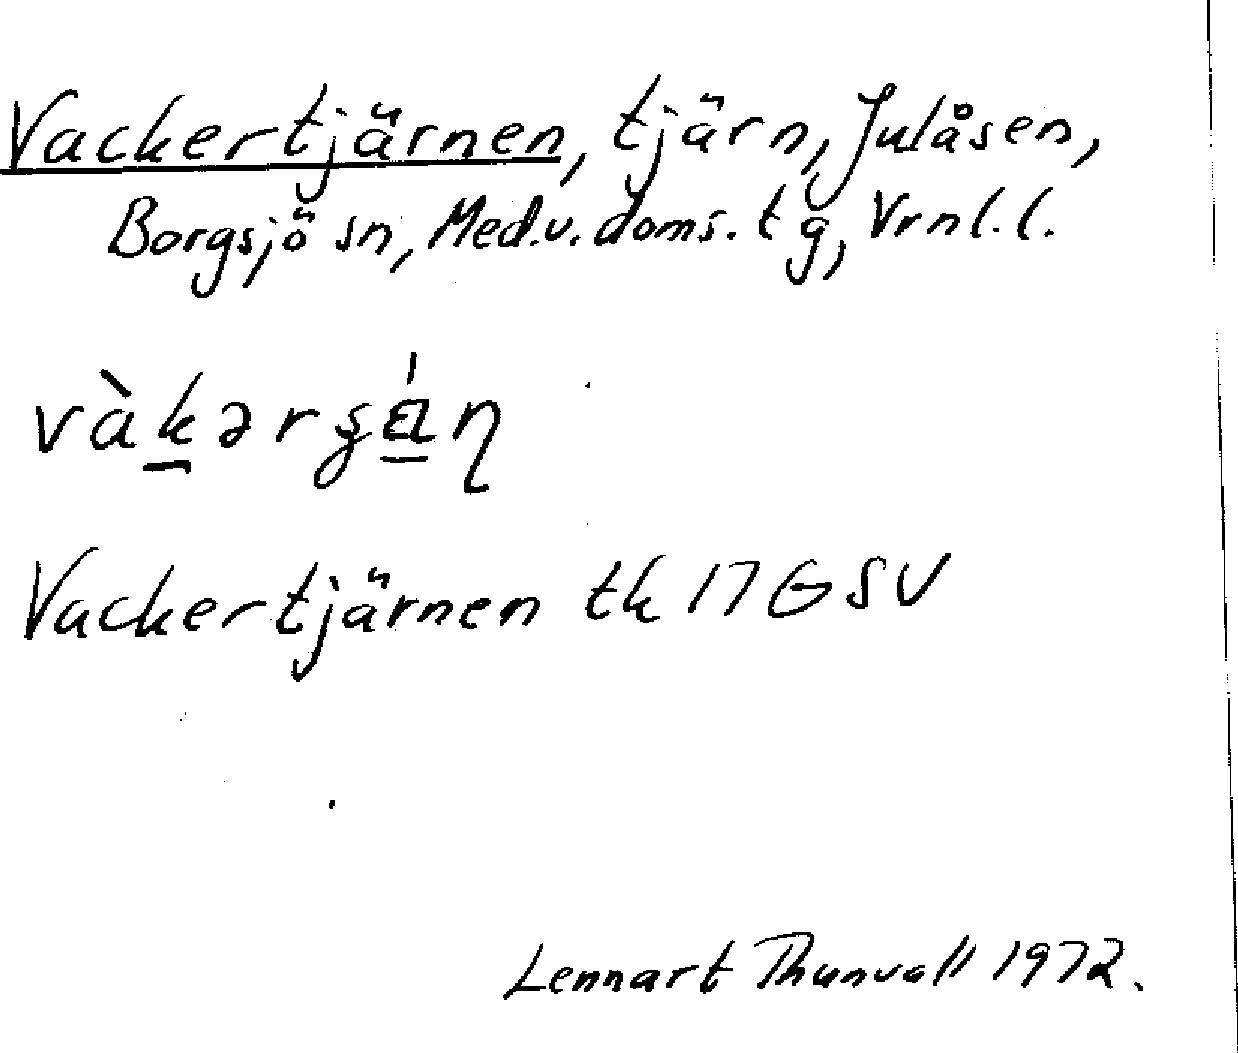 Vackertjärnen, tjärn, Julåsen,
Borgsjö sn, Med.v. doms. tg, Vrnl. l.
Vackertjärnen tk 17 G SV
Lennart Thunvall 1972.